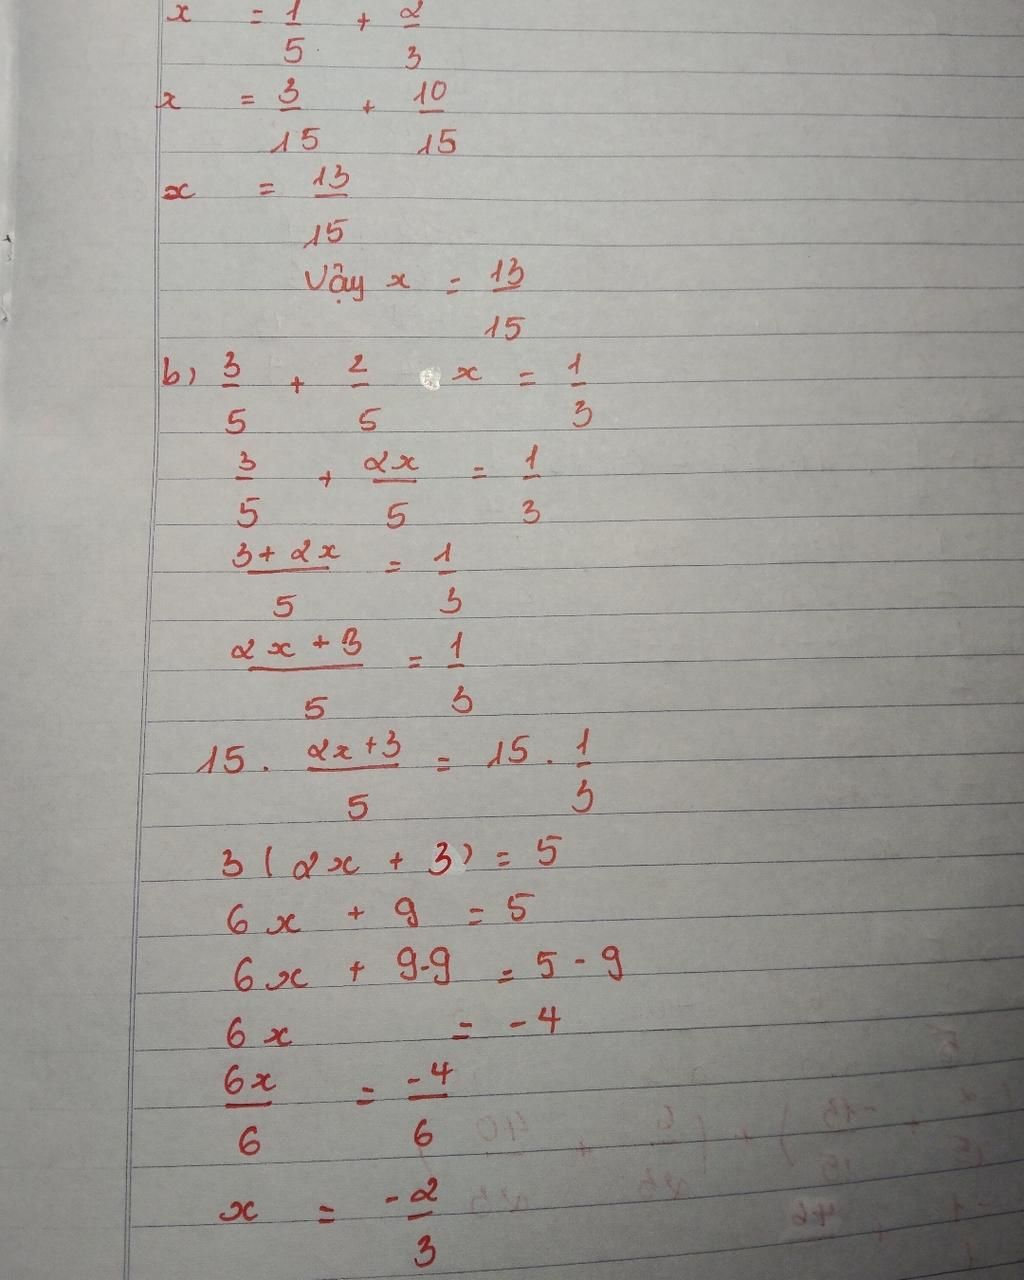 x = 1/5 + 2/3
x = 3/15 + 10/15
x = 13/15
Vậy x = 13/15
b) 3/5 + 2/5 x = 1/3
3/5 + 2x/5 = 1/3
3 + 2x/5 = 1/3
2x + 3/5 = 1/3
15 . 2x + 3/5 = 15 . 1/3
3 ( 2x + 3 ) = 5
6x + 9 = 5
6x + 9 - 9 = 5 - 9
6x = -4
6x/6 = -4/6
x = -2/3